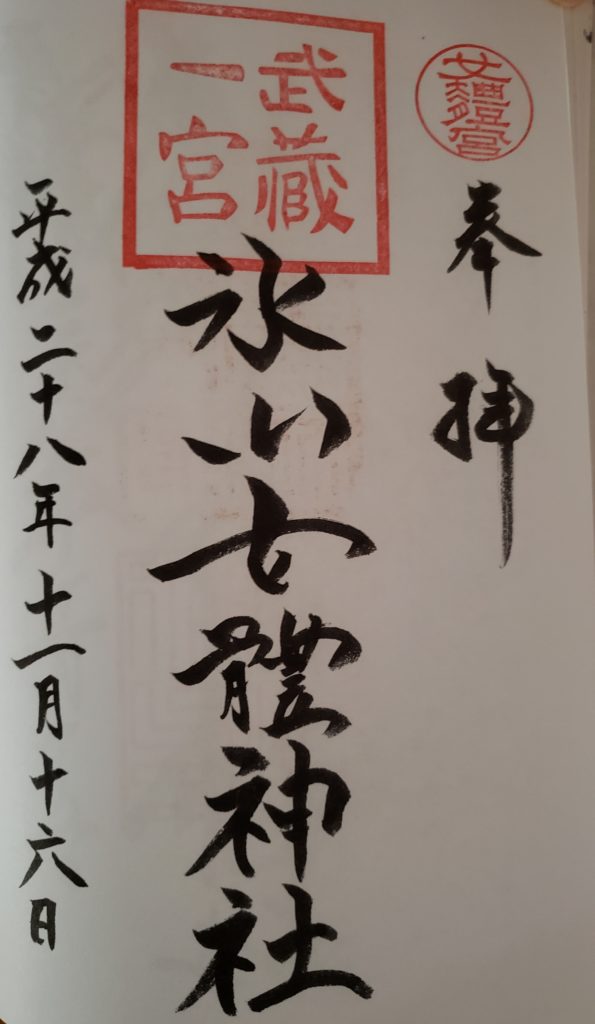 女體宮
奉拝
武藏
一宮
氷川女體神社
平成二十八年十一月十六日